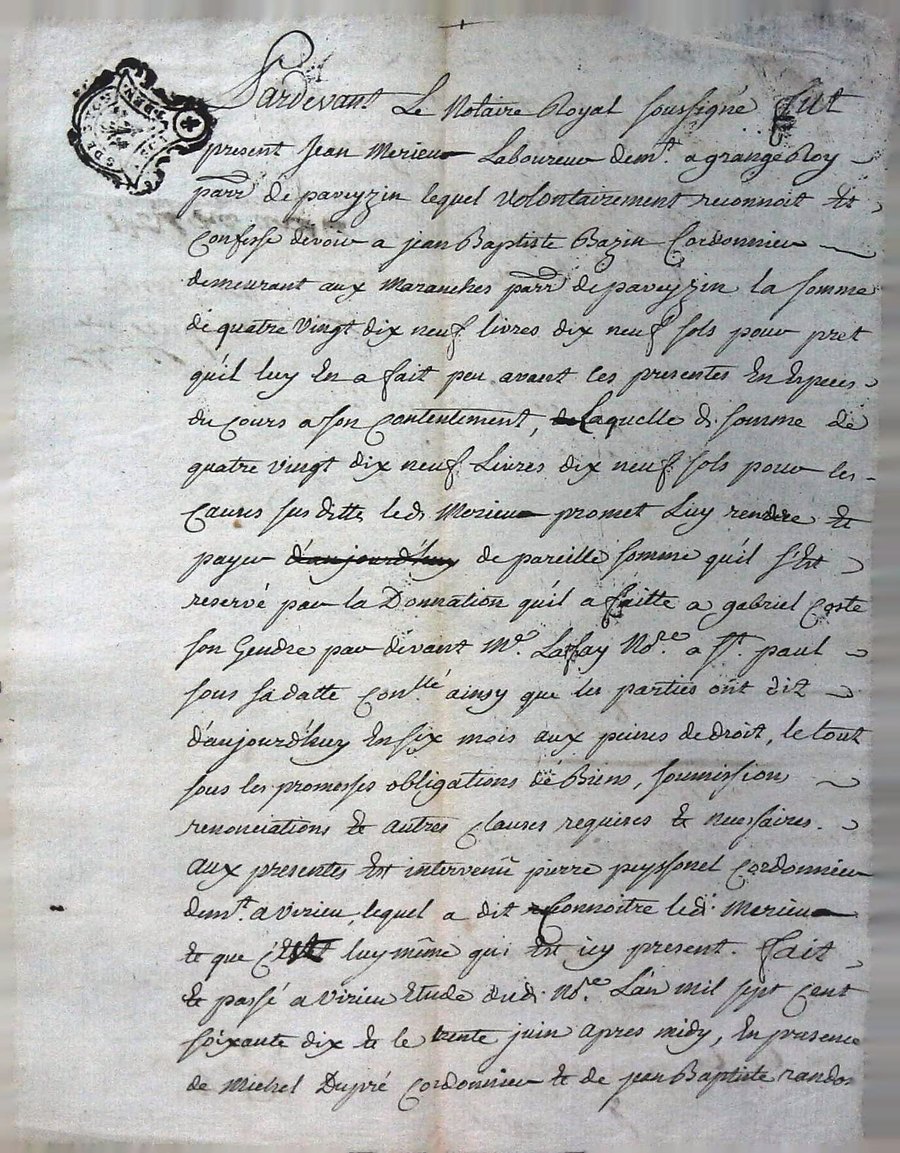 Pardevant Le Notaire Royal soussigné fut
present Jean Merieu Laboureur demt. a grangeRoy
parr de paveyzin lequel volontairement reconnoit et
Confesse devoir a jean Baptiste Bazin Cordonnier
demeurant aux Maranches parr de paveyzin la somme
de quatre vingt dix neuf livres dix neuf sols pour pret
qu'il luy En a fait peu avant les presentes En Especes
du Cours a son Contentement, laquelle d. somme de
quatre vingt dix neuf Livres dix neuf sols pour les
Causes susdittes led. Merieu promet Luy rendre et
payer d'aujourd'huy de pareille somme qu'il s'Est
reservé par la Donnation qu'il a faitte a gabriel Coste
son Gendre par devant Me. Laffay Nore. a St. paul
sous sa datte conttée ainsy que les parties ont dit
d'aujourd'huy En six mois aux peines de droit, le tout
sous les promesses obligations de Biens, soumission
renonciations et autres Clauses requises et necessaires.
aux presentes Est intervenü pierre peyssonel Cordonnier
demt. a virieu, lequel a dit Connoitre led. Merieu
et que c'Est luy même qui Est icy present. fait
et passé a virieu Etude dud. Nore. L'an mil sept Cent
soixante dix et le trente juin apres midy, En presence
de Michel Dupré Cordonnier et de jean Baptiste randon